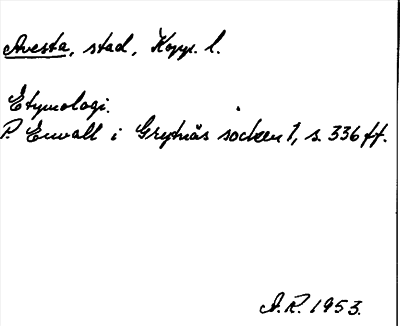 Avesta, stad, Kopp. l.
Etymologi.
P. Enwall i Grytnäs socken 1, s. 336 ff.
A.R. 1953.